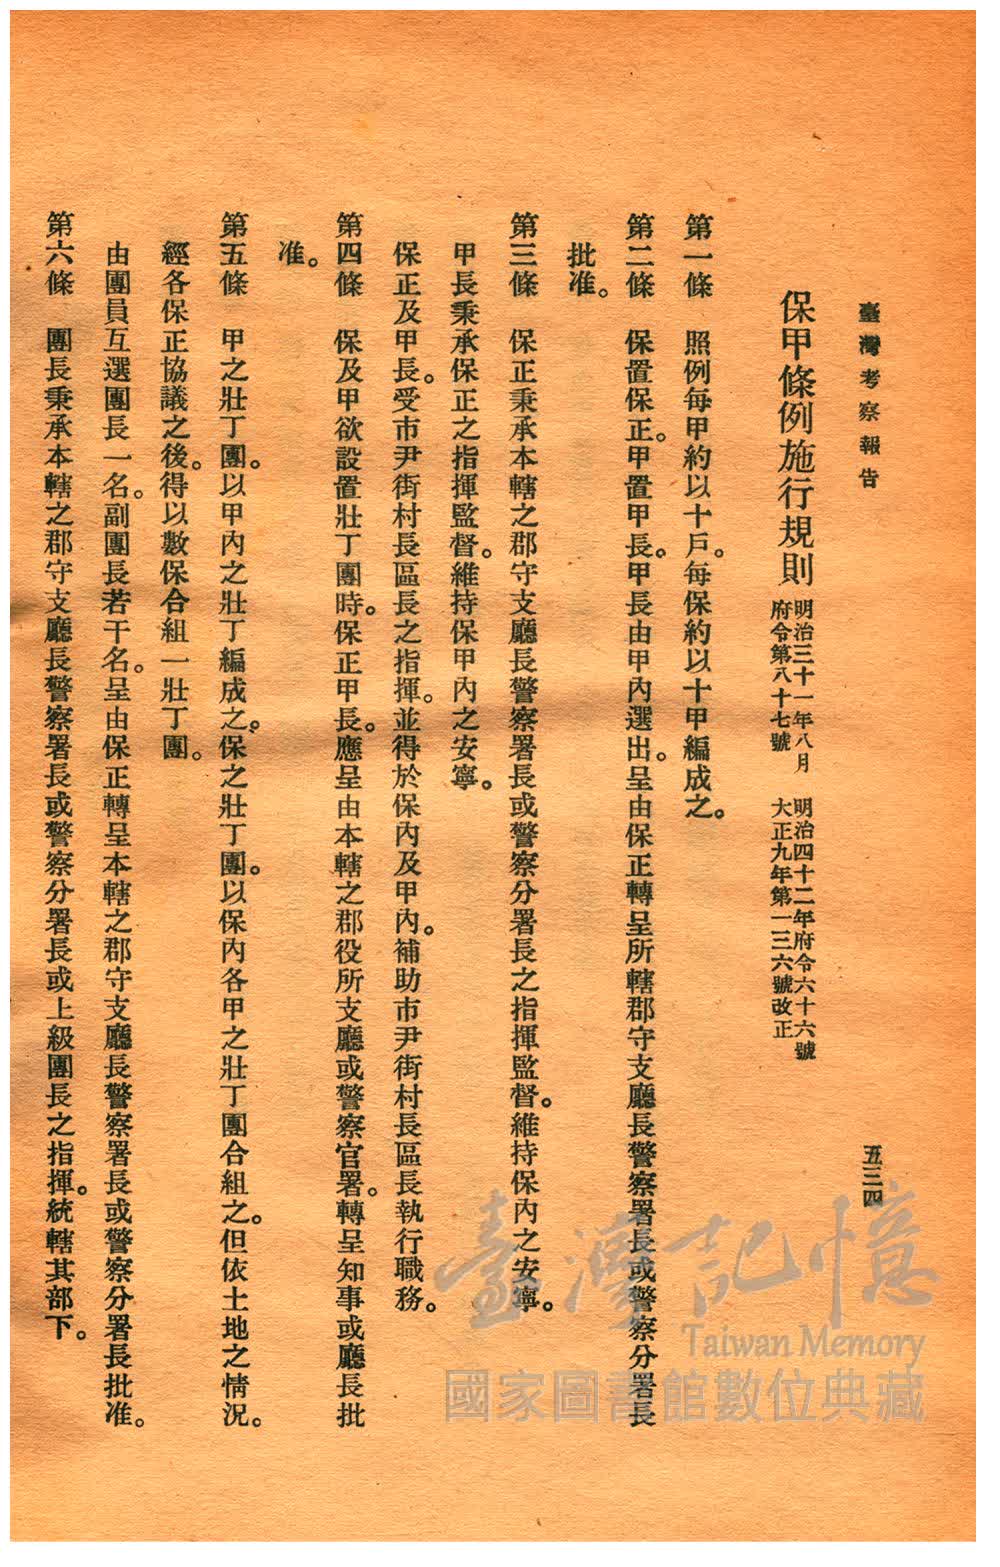 臺灣考察報告
五三四
保甲條例施行規則
明治三十一年八月
府令第八十七號
明治四十二年府令六十六號
大正九年第一三六號改正
第一條　照例每甲約以十戶。每保約以十甲編成之。
第二條　保置保正。甲置甲長。甲長由甲內選出。呈由保正轉呈所轄郡守支廳長警察署長或警察分署長
批准。
第三條　保正秉承本轄之郡守支廳長警察署長或警察分署長之指揮監督。維持保內之安寧。
甲長秉承保正之指揮監督。維持保甲內之安寧。
保正及甲長。受市尹街村長區長之指揮。並得於保內及甲內。補助市尹街村長區長執行職務。
第四條　保及甲欲設置壯丁團時。保正甲長。應呈由本轄之郡役所支廳或警察官署。轉呈知事或廳長批
准。
第五條　甲之壯丁團。以甲內之壯丁編成之。保之壯丁團。以保內各甲之壯丁團合組之。但依土地之情況。
經各保正協議之後。得以數保合組一壯丁團。
由團員互選團長一名。副團長若干名。呈由保正轉呈本轄之郡守支廳長警察署長或警察分署長批准。
第六條　團長秉承本轄之郡守支廳長警察署長或警察分署長或上級團長之指揮。統轄其部下。
臺灣記憶
Taiwan Memory
國家圖書館數位典藏